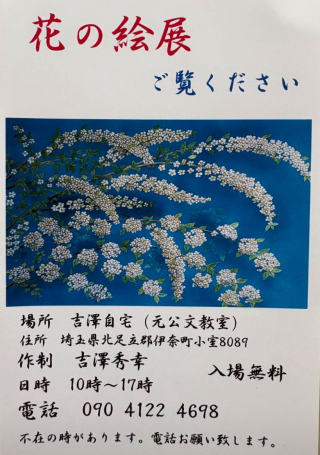 花の絵展
ご覧ください
場所 吉澤自宅（元公文教室）
住所 埼玉県北足立郡伊奈町小室8089
作制 吉澤秀幸
入場無料
日時 10時～17時
電話 090 4122 4698
不在の時があります。電話お願い致します。